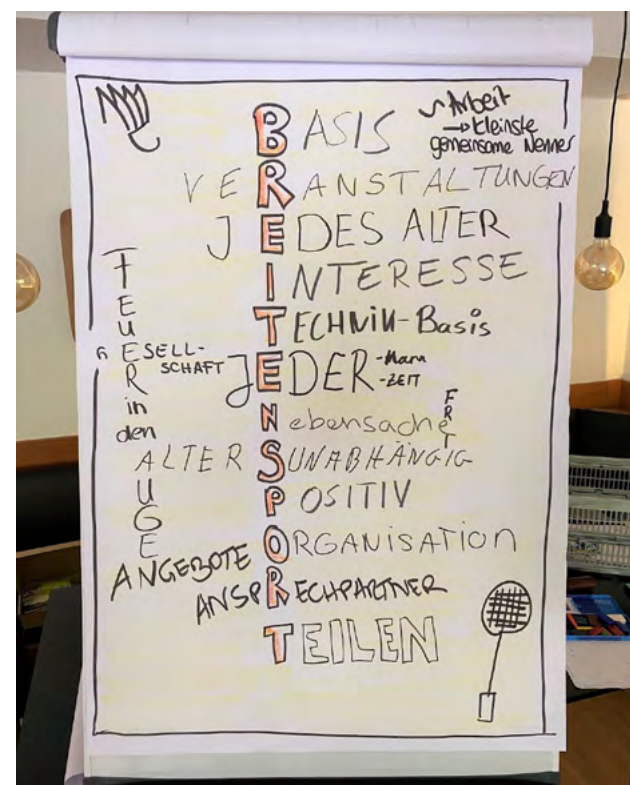 BASIS
~ Arbeit
→ kleinste
gemeinsame Nenner
VERANSTALTUNGEN
JEDES ALTER
INTERESSE
TECHNIK-Basis
GESELL-
SCHAFT
JEDER -Mann
-ZEIT
Nebensache
ALTERSUNABHÄNGIG
POSITIV
ORGANISATION
ANGEBOTE
ANSPRECHPARTNER
TEILEN
FEUER in den AUGEN